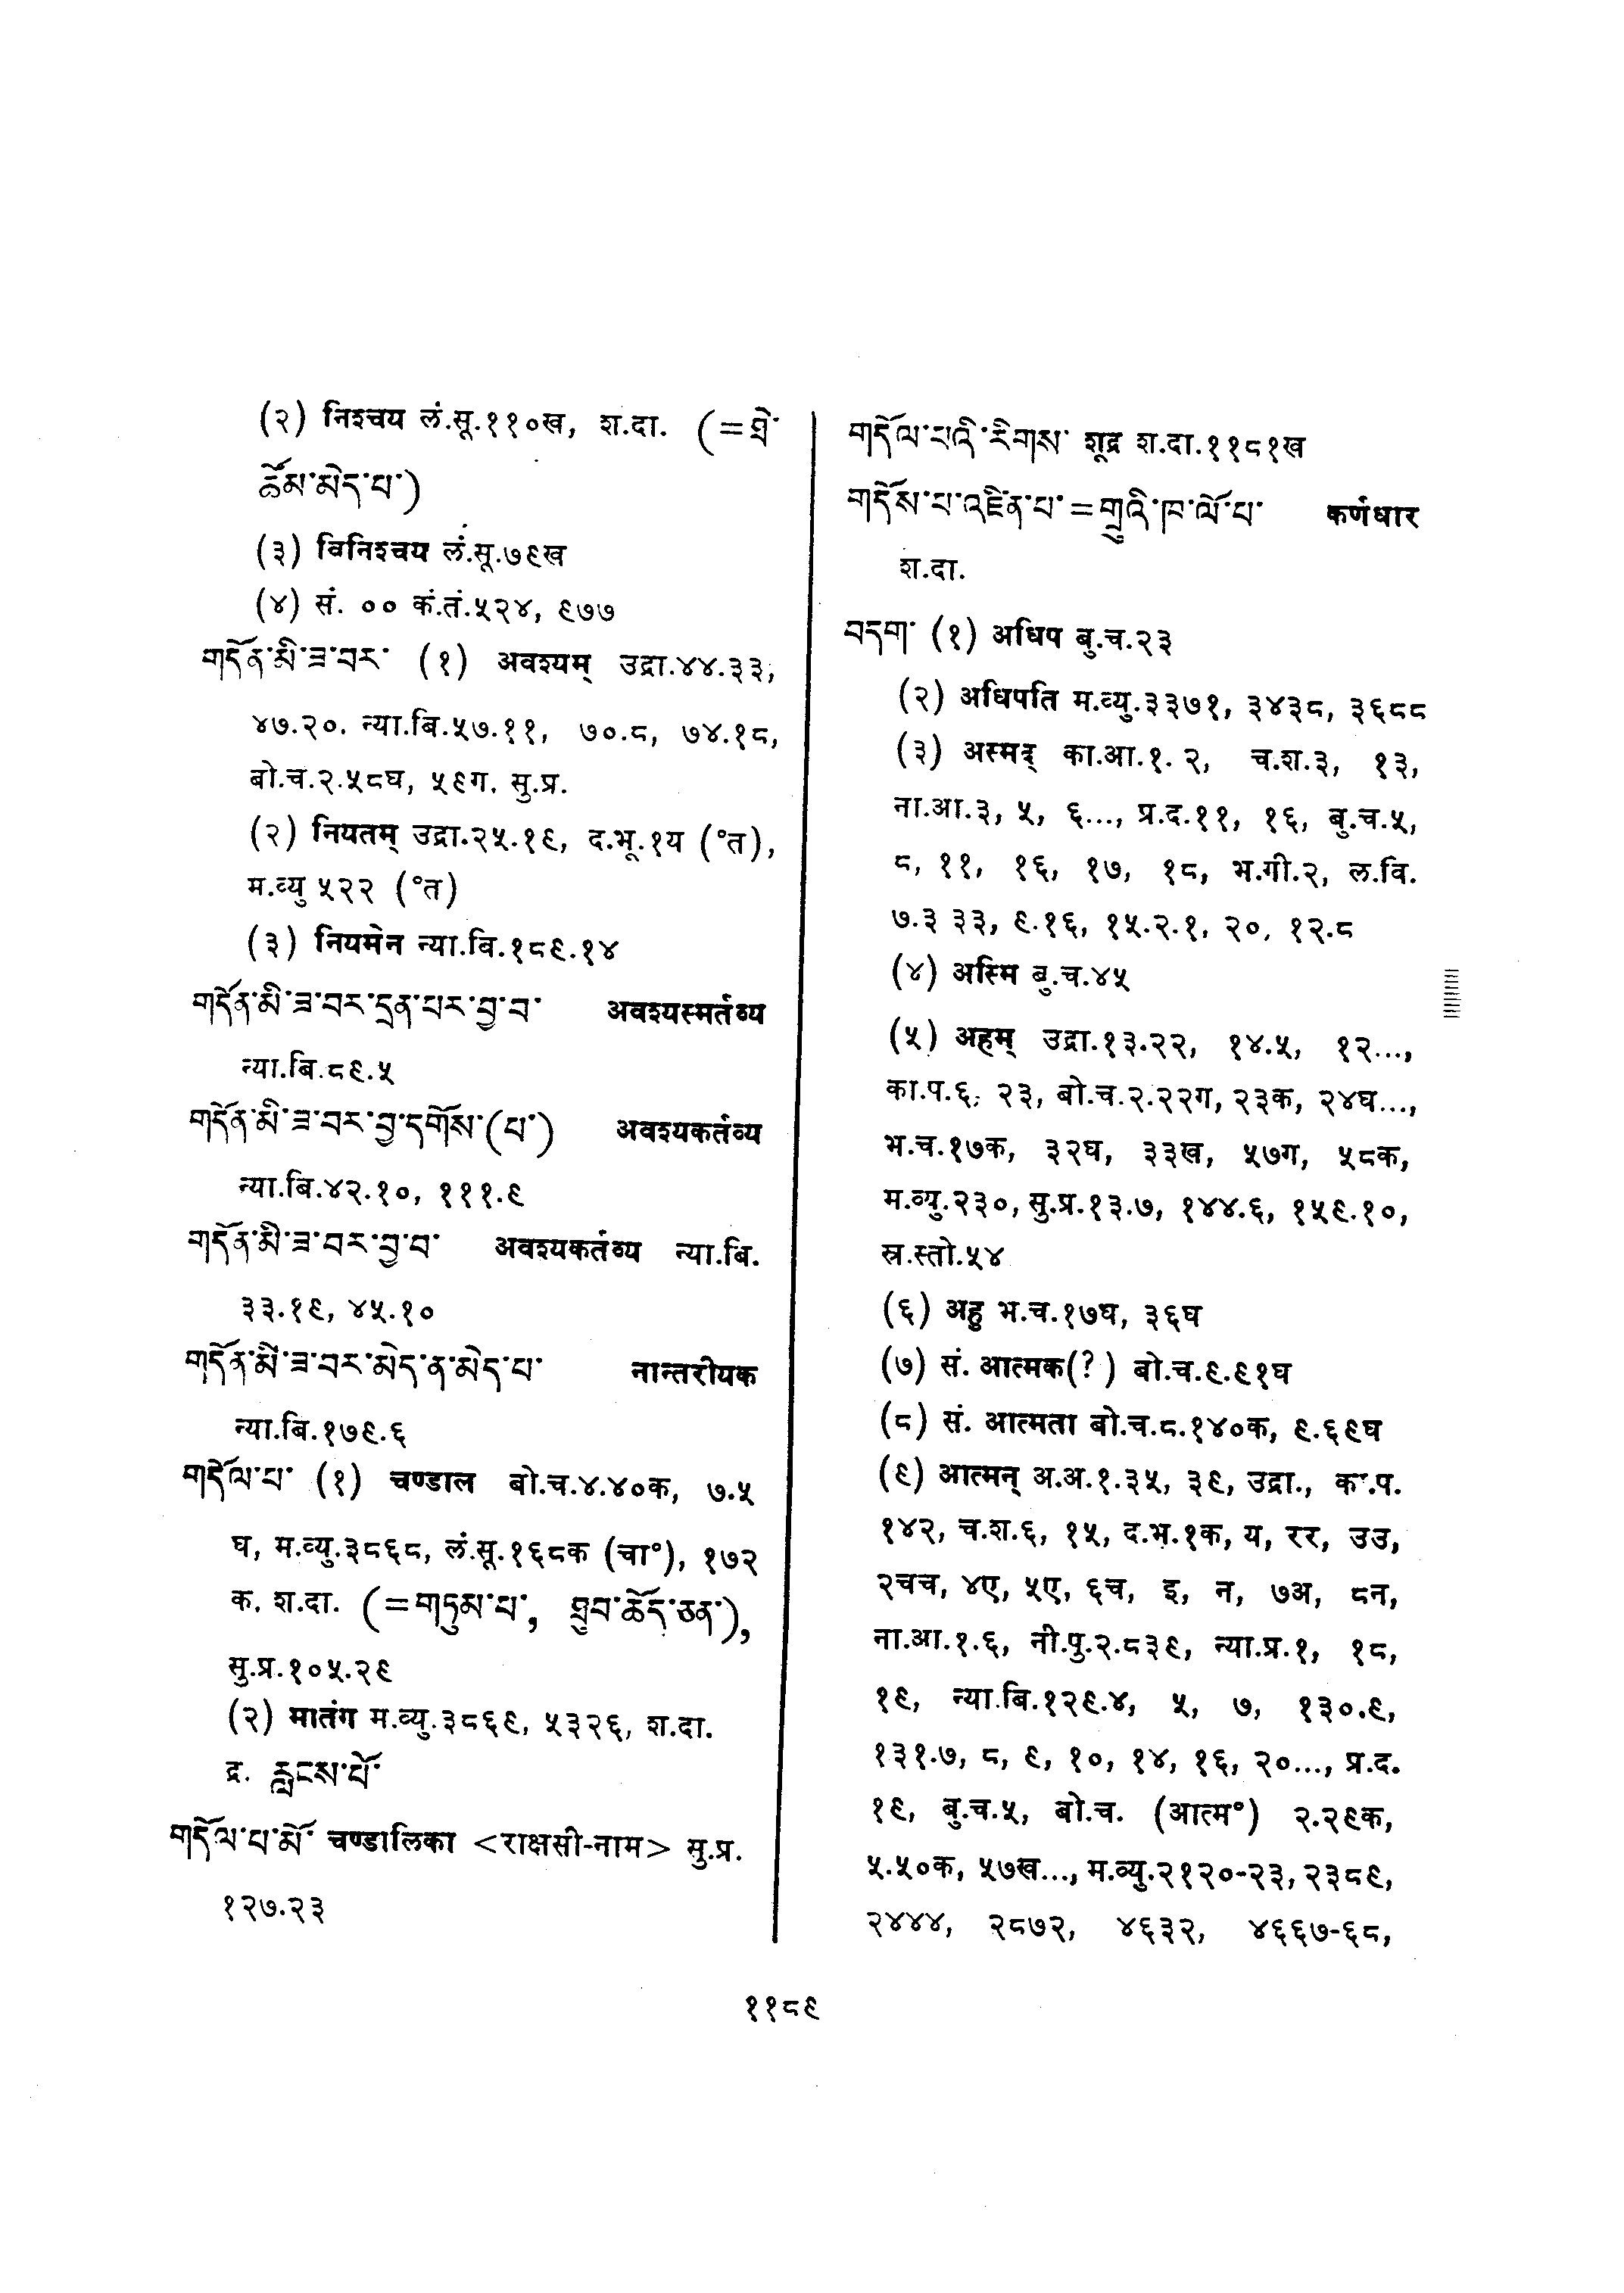 (२) निश्चय लं.सू.११०ख, श.दा. (=ཐེ་
ཚོམ་མེད་པ་)
(३) विनिश्चय लं.सू.७९ख
(४) सं. ०० कं.तं.५२४, ९७७
གདོན་མི་ཟ་བར་ (१) अवश्यम् उद्रा.४४.३३,
४७.२०. न्या.बि.५७.११, ७०.८, ७४.१८,
बो.च.२.५८घ, ५९ग. सु.प्र.
(२) नियतम् उद्रा.२५.१९, द.भू.१य (°त),
म.व्यु ५२२ (°त)
(३) नियमेन न्या.बि.१८९.१४
གདོན་མི་ཟ་བར་དྲན་པར་བྱ་བ་ अवश्यस्मर्तव्य
न्या.बि.८९.५
གདོན་མི་ཟ་བར་བྱ་དགོས་(པ་) अवश्यकर्तव्य
न्या.बि.४२.१०, १११.९
གདོན་མི་ཟ་བར་བྱ་བ་ अवश्यकर्तव्य न्या.बि.
३३.१९, ४५.१०
གདོན་མི་ཟ་བར་མེད་ན་མེད་པ་ नान्तरीयक
न्या.बि.१७९.६
གདོལ་པ་ (१) चण्डाल बो.च.४.४०क, ७.५
घ, म.व्यु.३८६८, लं.सू.१६८क (चा°), १७२
क. श.दा. (=གཏུམ་པ་, ཐུབ་ཆོད་ཅན་),
सु.प्र.१०५.२९
(२) मातंग म.व्यु.३८६९, ५३२६, श.दा.
द्र. རླངས་པོ་
གདོལ་པ་མོ་ चण्डालिका <राक्षसी-नाम> सु.प्र.
१२७.२३
གདོལ་པའི་རིགས་ शूद्र श.दा.११८१ख
གདོས་པ་འཛིན་པ་=གྲུའི་ཁ་ལོ་པ་ कर्णधार
श.दा.
བདག་ (१) अधिप बु.च.२३
(२) अधिपति म.व्यु.३३७१, ३४३८, ३६८८
(३) अस्मद् का.आ.१. २, च.श.३, १३,
ना.आ.३, ५, ६..., प्र.द.११, १६, बु.च.५,
८, ११, १६, १७, १८, भ.गी.२, ल.वि.
७.३ ३३, ९.१६, १५.२.१, २०, १२.८
(४) अस्मि बु.च.४५
(५) अहम् उद्रा.१३.२२, १४.५, १२...,
का.प.६, २३, बो.च.२.२२ग, २३क, २४घ...,
भ.च.१७क, ३२घ, ३३ख, ५७ग, ५८क,
म.व्यु.२३०, सु.प्र.१३.७, १४४.६, १५९.१०,
स्र.स्तो.५४
(६) अहु भ.च.१७घ, ३६घ
(७) सं. आत्मक(?) बो.च.९.९१घ
(८) सं. आत्मता बो.च.८.१४०क, ९.६९घ
(९) आत्मन् अ.अ.१.३५, ३९, उद्रा., का.प.
१४२, च.श.६, १५, द.भ.१क, य, रर, उउ,
२चच, ४ए, ५ए, ६च, इ, न, ७अ, ८न,
ना.आ.१.६, नी.पु.२.८३९, न्या.प्र.१, १८,
१९, न्या.बि.१२९.४, ५, ७, १३०.९,
१३१.७, ८, ९, १०, १४, १६, २०..., प्र.द.
१९, बु.च.५, बो.च. (आत्म°) २.२९क,
५.५०क, ५७ख..., म.व्यु.२१२०-२३, २३८९,
२४४४, २८७२, ४६३२, ४६६७-६८,
११८९